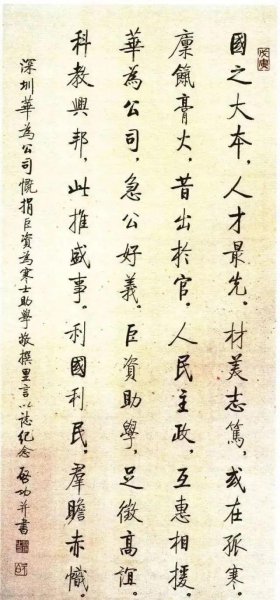 國之大本，人才最先。材美志篤，或在孤寒。
廩餼膏火，昔出於官。人民主政，互惠相援。
華為公司，急公好義。巨資助學，足徵高誼。
科教興邦，此推盛事。利國利民，羣瞻赤幟。
深圳華為公司慨捐巨資為寒士助學敬撰里言以誌紀念 啓功并書